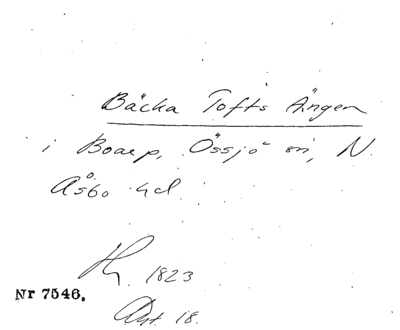 Bäcka Tofts Ängen
i Boarp, Össjö sn, N.
Åsbo hd.
1823
Nr 7546.
Akt 18.